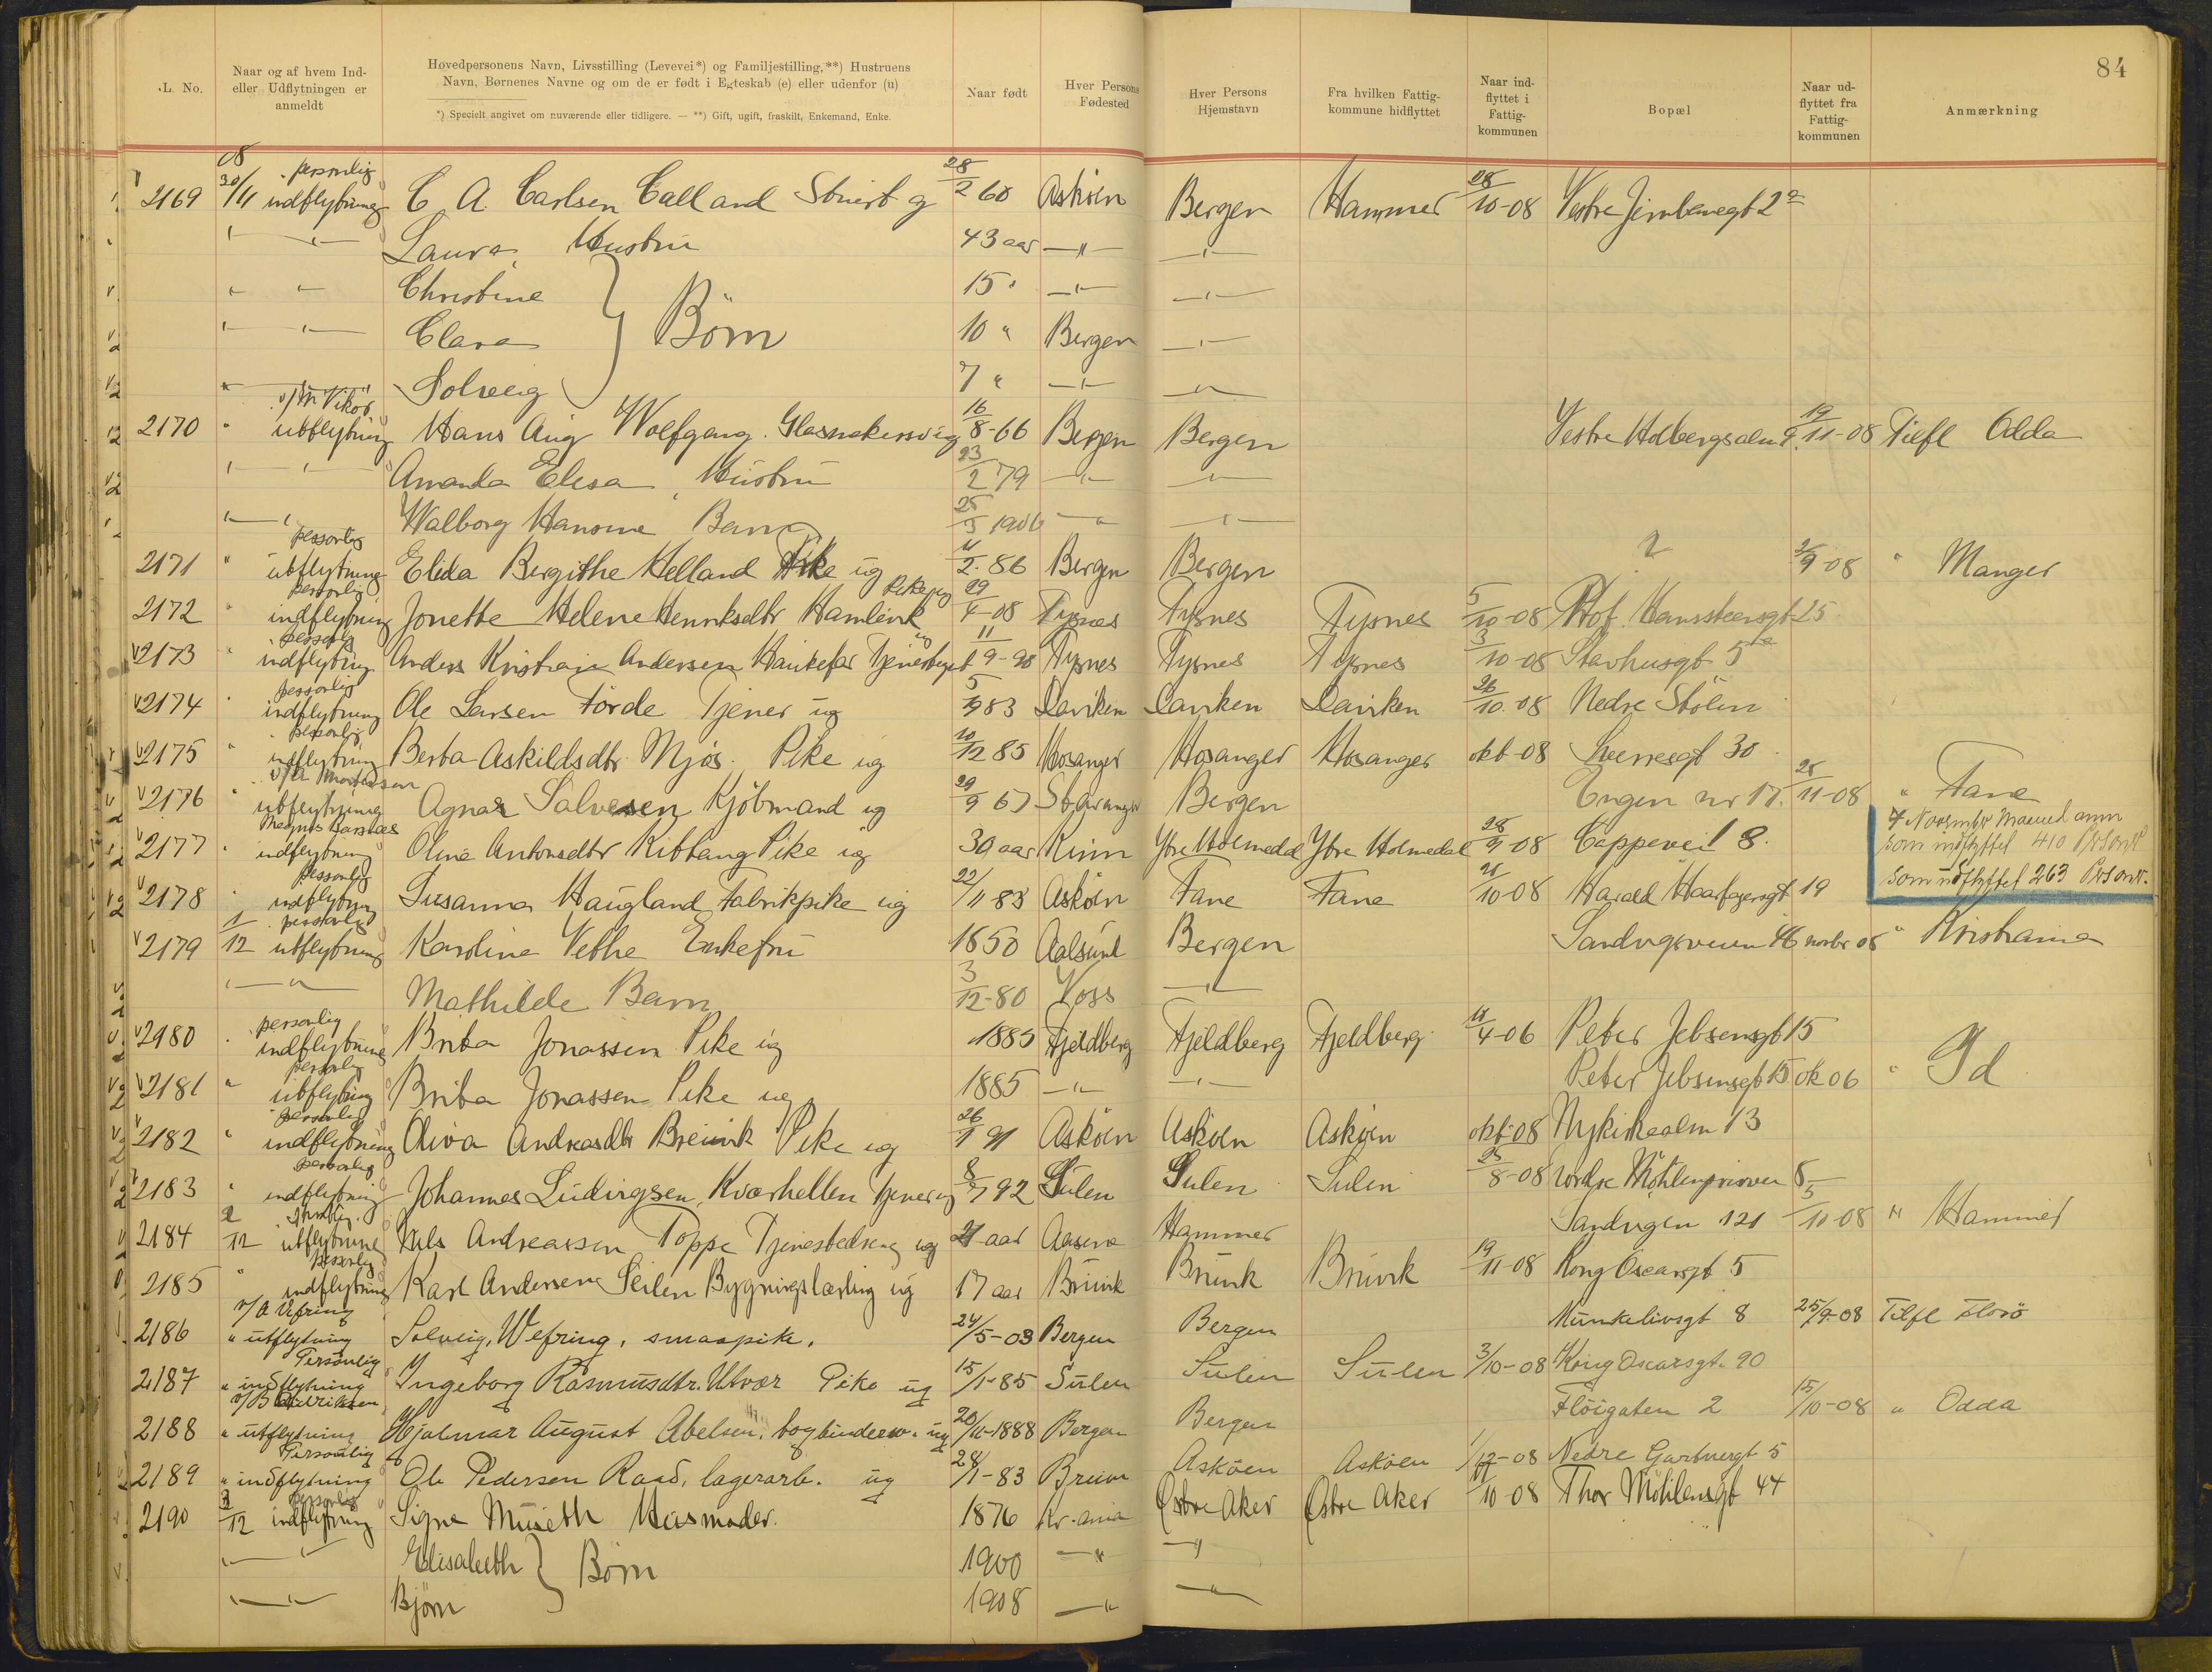 84
L. No.
Naar og af hvem Ind- eller Udflytningen er anmeldt
Hovedpersonens Navn, Livsstilling (Levevei*) og Familjestilling,**) Hustruens Navn, Børnenes Navne og om de er født i Egteskab (e) eller udenfor (u)
*) Specielt angivet om nuværende eller tidligere. — **) Gift, ugift, fraskilt, Enkemand, Enke.
Naar født
Hver Persons Fødested
Hver Persons Hjemstavn
Fra hvilken Fattig- kommune hidflyttet
Naar ind- flyttet i Fattig- kommunen
Bopæl
Naar ud- flyttet fra Fattig- kommunen
Anmærkning
2169 08 30/11 personlig indflytning C. A. Carlsen Calland Stuert g 28/2 60 Askøen Bergen Hammer 28/10-08 Vestre Jernbanegt 2a
" " Laura, Hustru 43 aar " "
" " Christine 15 " " "
" " Clara } Børn 10 " Bergen "
" Solveig 7 " " "
2170 " v/ M Vikör utflytning Hans Aug Wolfgang Glasmakersvig 16/8-66 Bergen Bergen Vestre Holbergsalm 9. 19/11-08 Tilfl Odda
" " Amanda Elisa, Hustru 23/2 79 " "
" " Walborg Hansine Barn 25/5 1906 " "
2171 " personlig utflytning Elida Bergithe Helland Pike ug 11/2-86 Bergen Bergen ? 2/9-08 " Manger
2172 " personlig indflytning Jonette Helene Henriksdtr Hamlevik Pike ug 29/4-08 Tysnes Tysnes Tysnes 5/10-08 Prof Hansteensgt 25
2173 " personlig indflytning Anders Kristian Andersen Haukefær Tjenestegut ug 11/9-90 Tysnes Tysnes Tysnes 3/10-08 Stavhusgt 5a
2174 " personlig indflytning Ole Larsen Förde Tjener ug 5/9 83 Daviken Daviken Daviken 26/10-08 Nedre Stölen
2175 " personlig indflytning Berta Askildsdtr Mjøs Pike ug 10/12 85 Hosanger Hosanger Hosanger okt-08 Sverresgt 30
2176 " v/ A Mortensen utflytning Agnar Salvesen Kjöbmand ug 29/9 67 Stavanger Bergen Engen nr 17. 28/11-08 " Fane
2177 " Magnus Larsnæs indflytning Oline Antonsdtr Kittang Pike ug 30 aar Kinn Ytre Holmedal Ytre Holmedal 28/9-08 Cappevei 8.
I November Maaned anm
som indflyttet 410 Person
som udflyttet 263 Person.
2178 " personlig indflytning Susanna Haugland Fabrikpike ug 22/11 83 Askøen Fane Fane 26/10-08 Harald Haarfagersgt 19
2179 1/12 personlig utflytning Karoline Vethe Enkefru 1850 Aalsund Bergen Sandvigsveien 46 novbr 08 " Kristiania
" " Mathilde Barn 3/12-80 Voss "
2180 " personlig indflytning Brita Jonassen Pike ug 1885 Fjeldberg Fjeldberg Fjeldberg 18/4-06 Peter Jebsensgt 15
2181 " personlig utflytning Brita Jonassen Pike ug 1885 " " Peter Jebsensgt 15 ok 06 " Id
2182 " personlig indflytning Oliva Andreasdtr Breivik Pike ug 26/1 91 Askøen Askøen Askøen okt-08 Nykirkealm 13
2183 " personlig indflytning Johannes Ludvigsen Kværhellen Tjener ug 8/7 92 Sulen Sulen Sulen 25/8-08 Nordre Möhlenprisvei 8
2184 2/12 utflytning Nils Andreassen Toppe Tjenestedreng ug 21 aar Aasene Hammer Sandvigen 121 5/10-08 " Hammer
2185 " personlig indflytning Karl Andersen Seilen Bygningslærling ug 17 aar Bruvik Bruvik Bruvik 19/11-08 Kong Oscarsgt 5
2186 v/ A Vefring " utflytning Solveig, Wefring, smaapike, 24/5-03 Bergen Bergen Munkelivsgt 8 25/9-08 Tilfl Florø
2187 Personlig " indflytning Ingeborg Rasmusdtr. Utvær Pike ug 15/1-85 Sulen Sulen Sulen 3/10-08 Kong Oscarsgt. 90
2188 v/ B Didriksen " utflytning Hjalmar August Abelsen, bogbindersv. ug 20/11-1888 Bergen Bergen Fløigaten 2 15/10-08 " Odda
2189 Personlig " indflytning Ole Pedersen Raad, lagerarb. ug 28/1-83 Breim Askøen Askøen 1/12-08 Nedre Gartnergt 5
2190 3/12 personlig indflytning Signe Museth Husmoder. 1876 Kr.ania Østre Aker Østre Aker 10-08 Thor Möhlensgt 44
" " Elisabeth } Børn 1900 " "
" " Bjørn 1908 " "